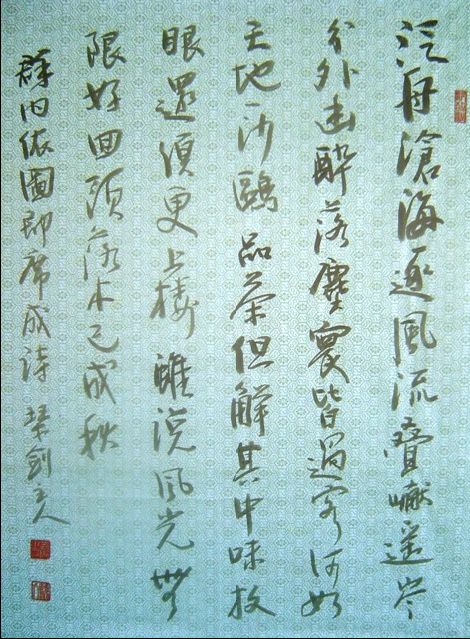 泛舟滄海逐風流疊巘遙岑
分外幽醉落塵寰皆過客何如
天地一沙鷗品茶但解其中味放
眼還須更上樓雖説風光無
限好回頭落木已成秋
群内依圖即席成詩 琴劍主人